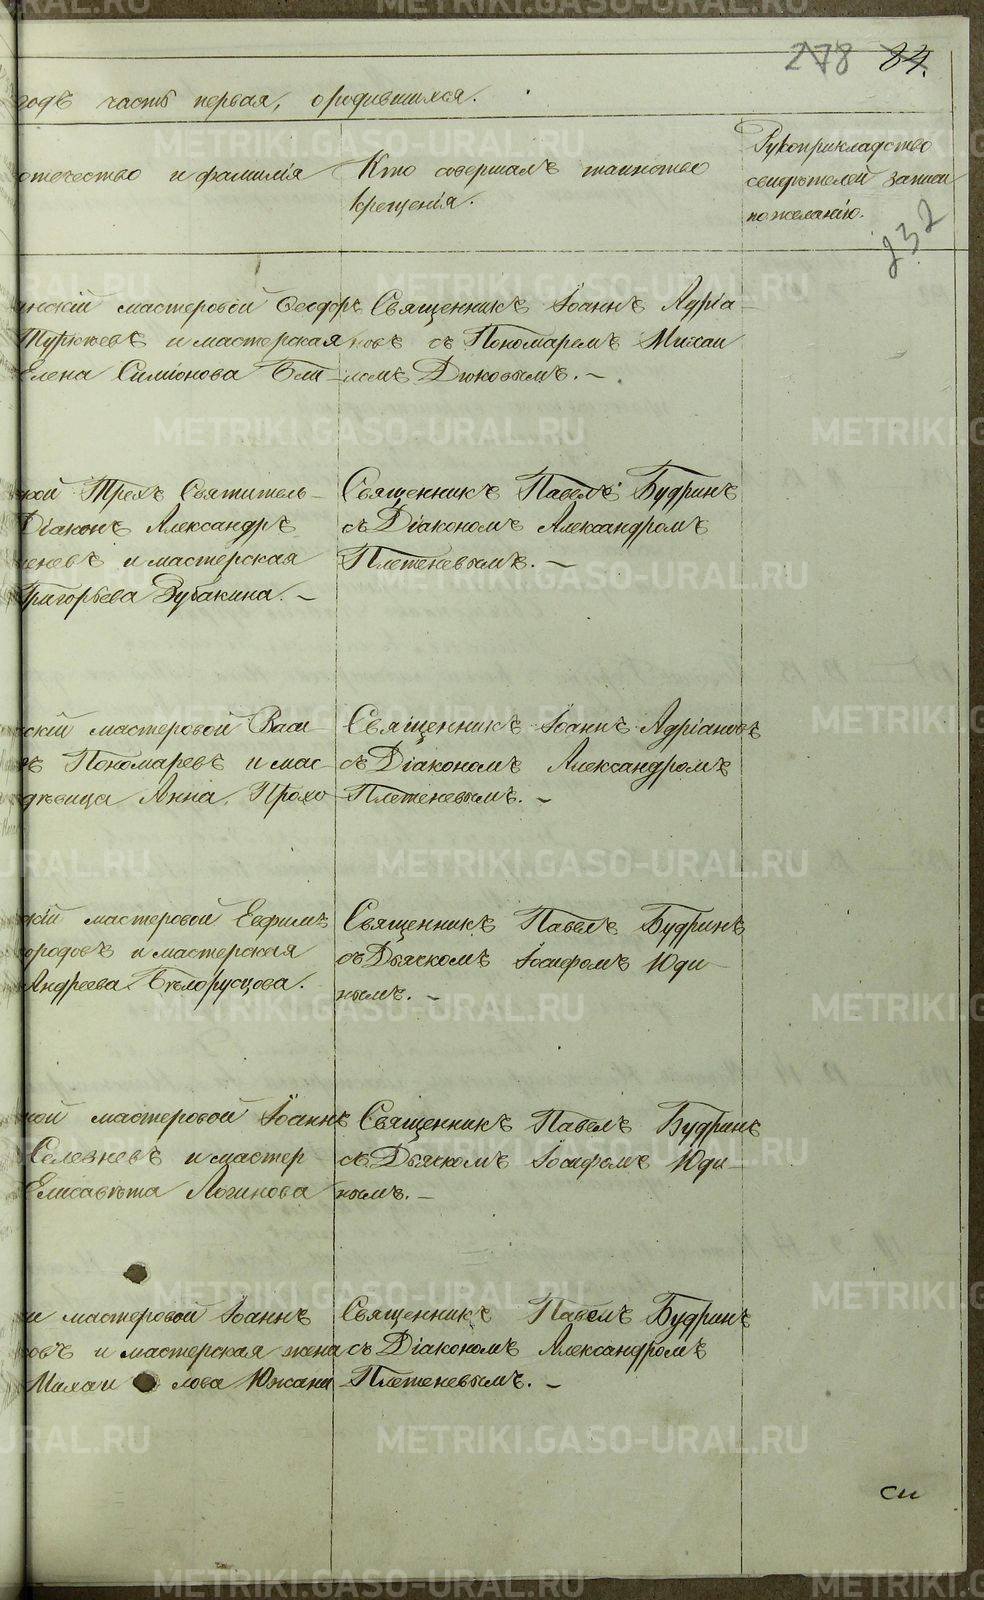 278 84.
годѣ часть первая, о родившихся.
отечество и фамилія
Кто совершалъ таинство
крещенія.
Рукоприкладство
свидѣтелей записи
по желанію.
232
мастеровой Ѳеодоръ
и мастерская
Елена Симіонова
Священникъ Іоаннъ Адріа-
новъ съ Пономаремъ Михаи
ломъ Дюковымъ. –
Трехъ Святитель-
Діаконъ Александръ
и мастерская
Григорьева Зубакина. –
Священникъ Павелъ Будринъ
съ Діакономъ Александромъ
Плетеневымъ. –
скій мастеровой Васи-
Пономаревъ и мас-
Анна Прохо
Священникъ Іоаннъ Адріановъ
съ Діакономъ Александромъ
Плетеневымъ. –
скій мастеровой Евфимъ
городовъ и мастерская
Андреева Бѣлорусцова.
Священникъ Павелъ Будринъ
съ Дьячкомъ Іосифомъ Юди-
нымъ. –
мастеровой Іоаннъ
Селезневъ и мастер
Елисавѣта Логинова
Священникъ Павелъ Будринъ
съ Дьячкомъ Іосифомъ Юди-
нымъ. –
мастеровой Іоаннъ
овъ и мастерская жена
Михаи лова Южани
Священникъ Павелъ Будринъ
съ Діакономъ Александромъ
Плетеневымъ. –
METRIKI.GASO-URAL.RU